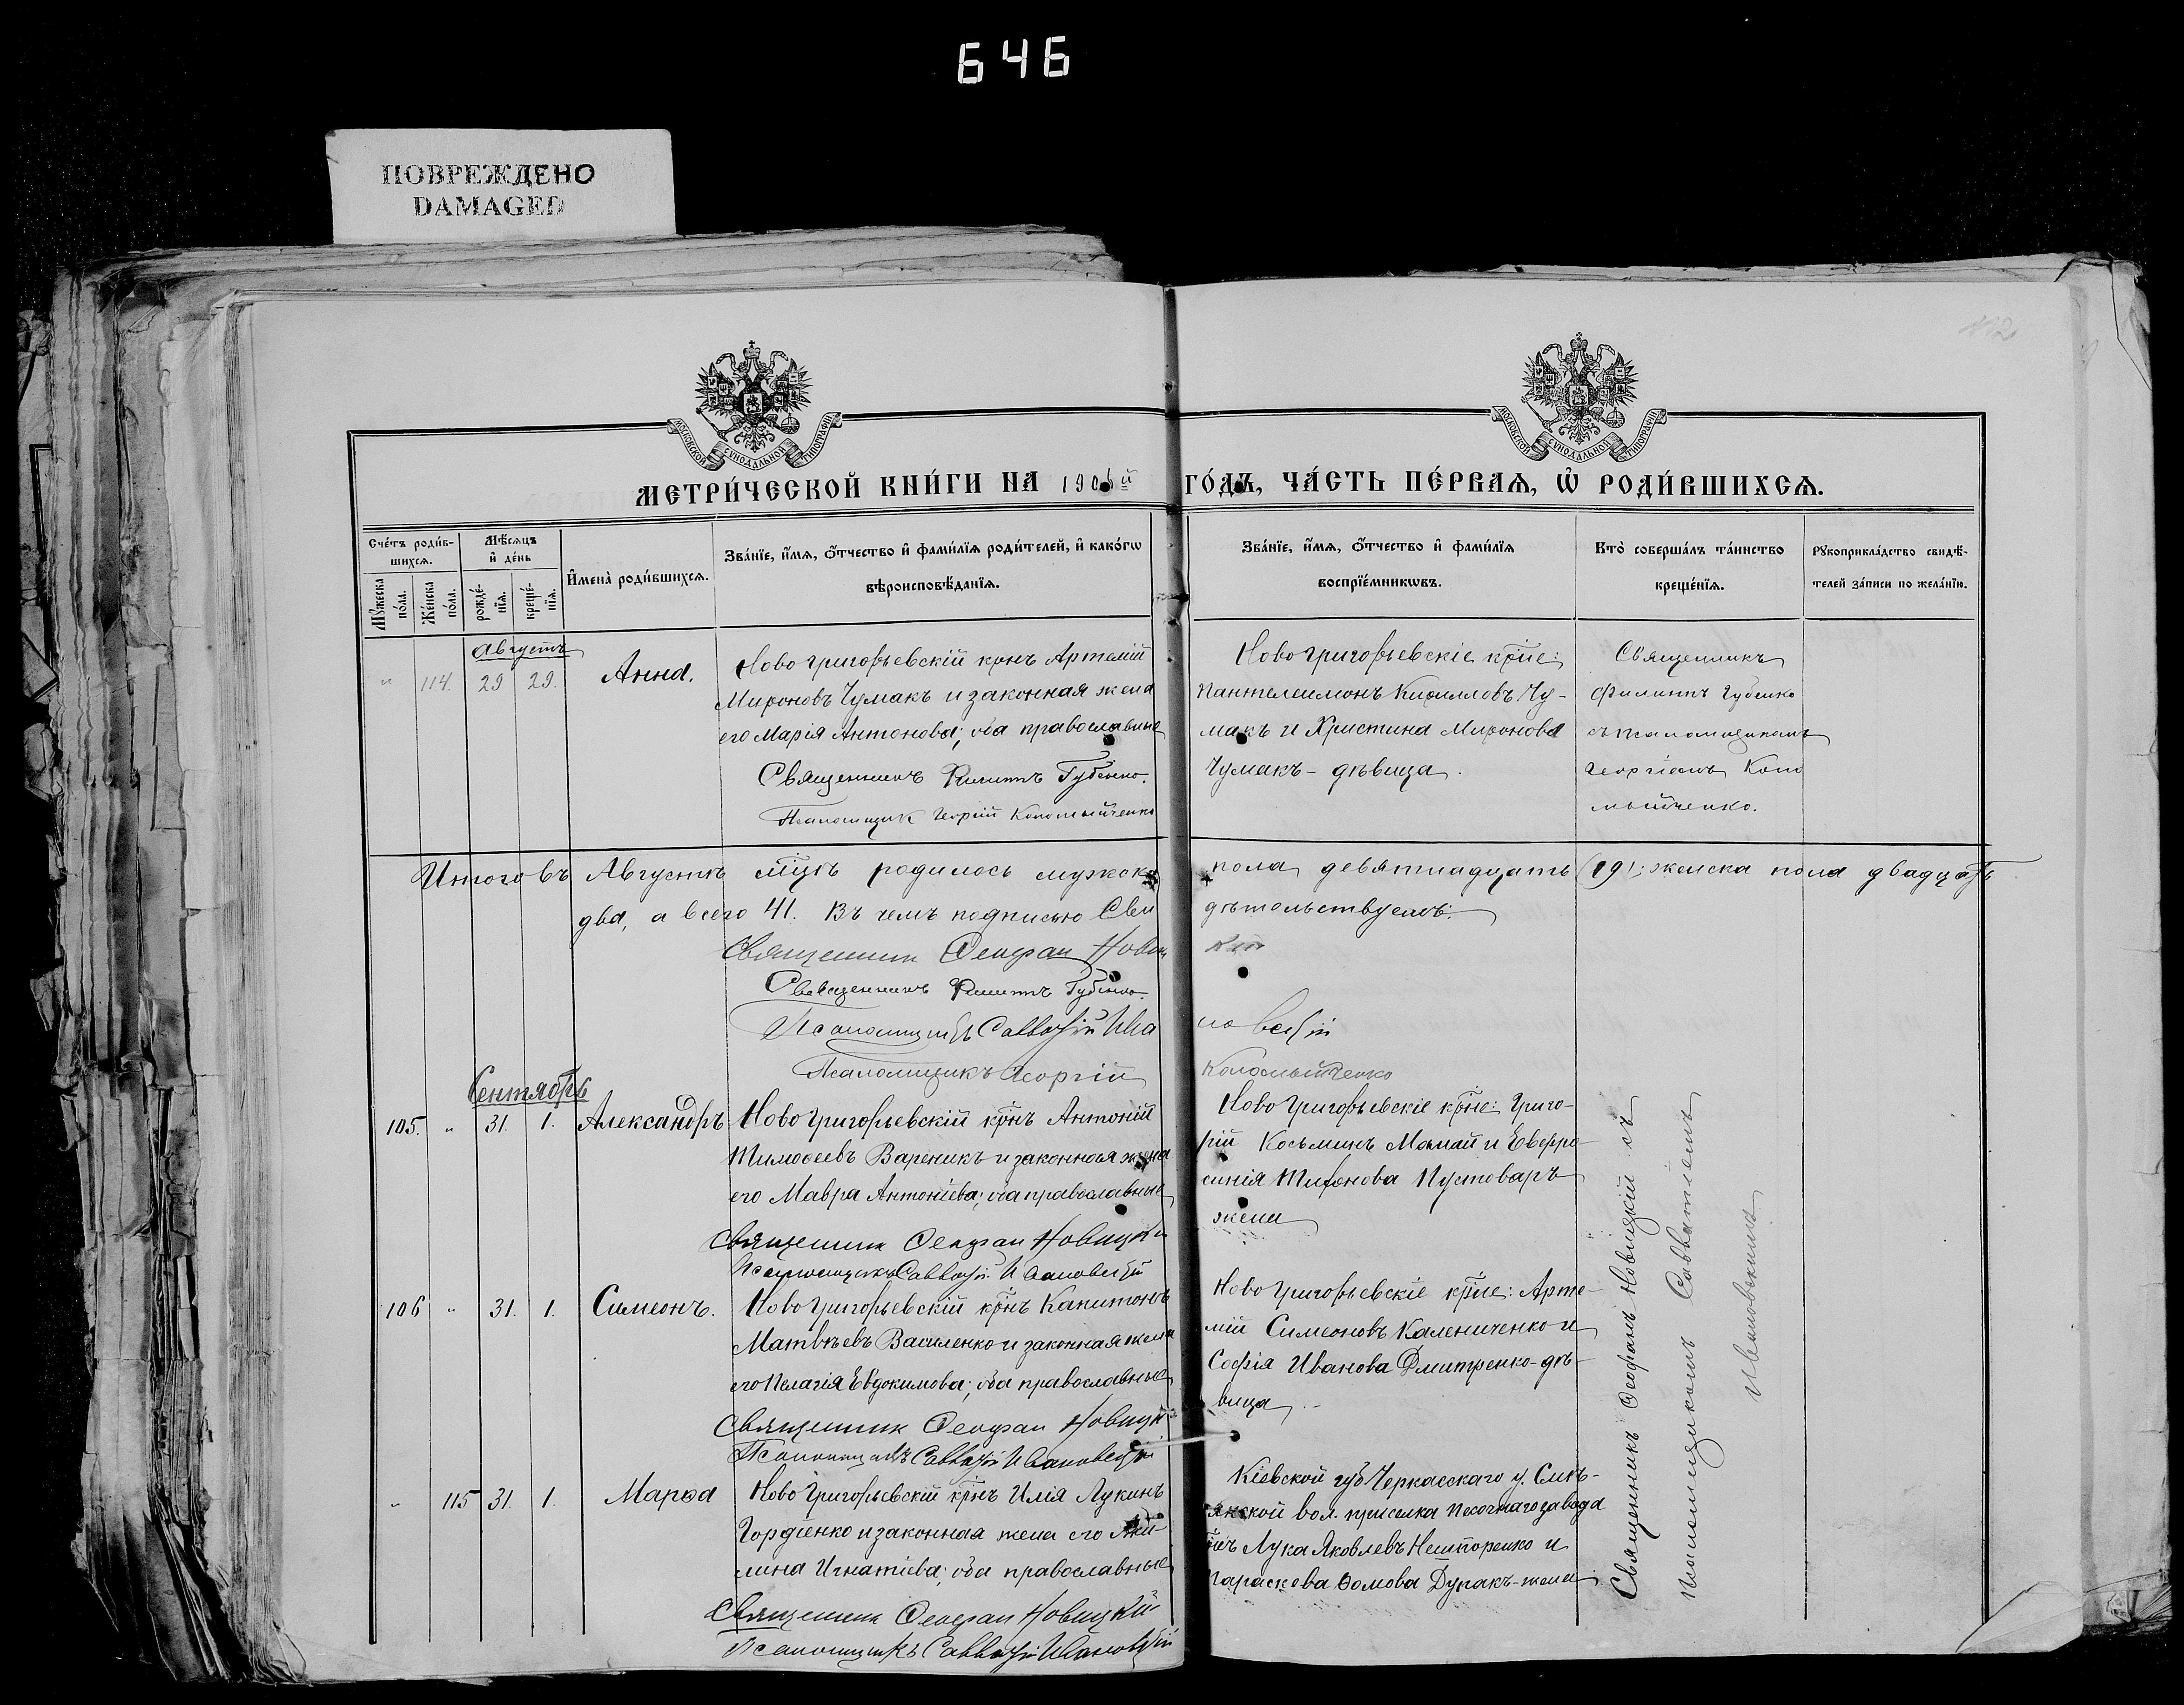 646
ПОВРЕЖДЕНО
DAMAGED
МОСКОВСКОЙ СѴНОДАЛЬНОЙ ТИПОГРАФІИ
МОСКОВСКОЙ СѴНОДАЛЬНОЙ ТИПОГРАФІИ
МЕТРИ́ЧЕСКОЙ КНИ́ГИ НА 190 й ГО́ДЪ, ЧА́СТЬ ПЕ́РВАѦ, Ѡ҆ РОДИ́ВШИХСѦ.
Сче́тъ роди́в-
шихсѧ.
Мꙋжеска
по́ла.
Же́нска
по́ла.
Мѣ́сѧцъ
и҆ де́нь
рожде́-
нїѧ.
креще́-
нїѧ.
И҆мена̀ роди́вшихсѧ.
Зва́нїе, и҆́мѧ, ѻ҆́тчество и҆ фами́лїѧ роди́телей, и҆ како́гѡ
вѣроисповѣ́данїѧ.
Зва́нїе, и҆́мѧ, ѻ҆́тчество и҆ фами́лїѧ
воспрїе́мникѡвъ.
Кто̀ соверша́лъ та́инство
креще́нїѧ.
Рꙋкоприкла́дство свидѣ́-
телей за́писи по жела́нїю.
Августъ
" 114. 29 29. Анна.
Новогригорьевскій крнъ Артемій
Мироновъ Чумакъ и законная жена
его Марія Антонова; оба православные
Священникъ Филиппъ Губенко.
Псаломщик Георгій Коломыйченко
Новогригорьевскіе крне:
Пантелеимонъ Кирилловъ Чу-
макъ и Христина Миронова
Чумакъ - дѣвица.
Священникъ
Филиппъ Губенко
съ псаломщикомъ
Георгіемъ Коло
мыйченко.
Итого въ Августѣ мцѣ родилось мужска пола девятнадцать (19); женска пола двадцать
два, а всего 41. Въ чемъ подписью Сви дѣтельствуемъ:
Священник Феофан Новиц кій
Священникъ Филиппъ Губенко.
Псаломщикъ Савватій Ива новскій
Псаломщикъ Георгій Коломыйченко
Сентябрь
105. " 31. 1. Александръ
Новогригорьевскій крнъ Антоній
Тимоѳеевъ Вареникъ и законная жена
его Мавра Антоніева; оба православные
Священник Феофан Новицкій
Псаломщикъ Савватій Ивановскій
Новогригорьевскіе крне: Григо-
рій Косьминъ Мамай и Евфро-
синія Тихонова Пустоваръ
жена
106 " 31. 1. Симеонъ.
Новогригорьевскій крнъ Капитонъ
Матвѣевъ Василенко и законная жена
его Пелагія Евдокимова; оба православные
Священник Феофан Новицкій
Псаломщикъ Савватій Ивановскій
Новогригорьевскіе крне: Арте-
мій Симеоновъ Калениченко и
Софія Иванова Дмитренко - дѣ-
вица.
" 115 31. 1. Марѳа
Новогригорьевскій крнъ Илія Лукинъ
Гордіенко и законная жена его Аки-
лина Игнатіева; оба православные
Священник Феофан Новицкій
Псаломщикъ Савватій Ивановскій
Кіевской губ. Черкасскаго у. Смѣ-
лянской вол. приселка Песочнаго завода
Лука Яковлевъ Нешторенко и
Параскева Ѳомова Дупакъ - жена
Священникъ Феофанъ Новицкій съ
Псаломщикомъ Савватіемъ
Ивановскимъ